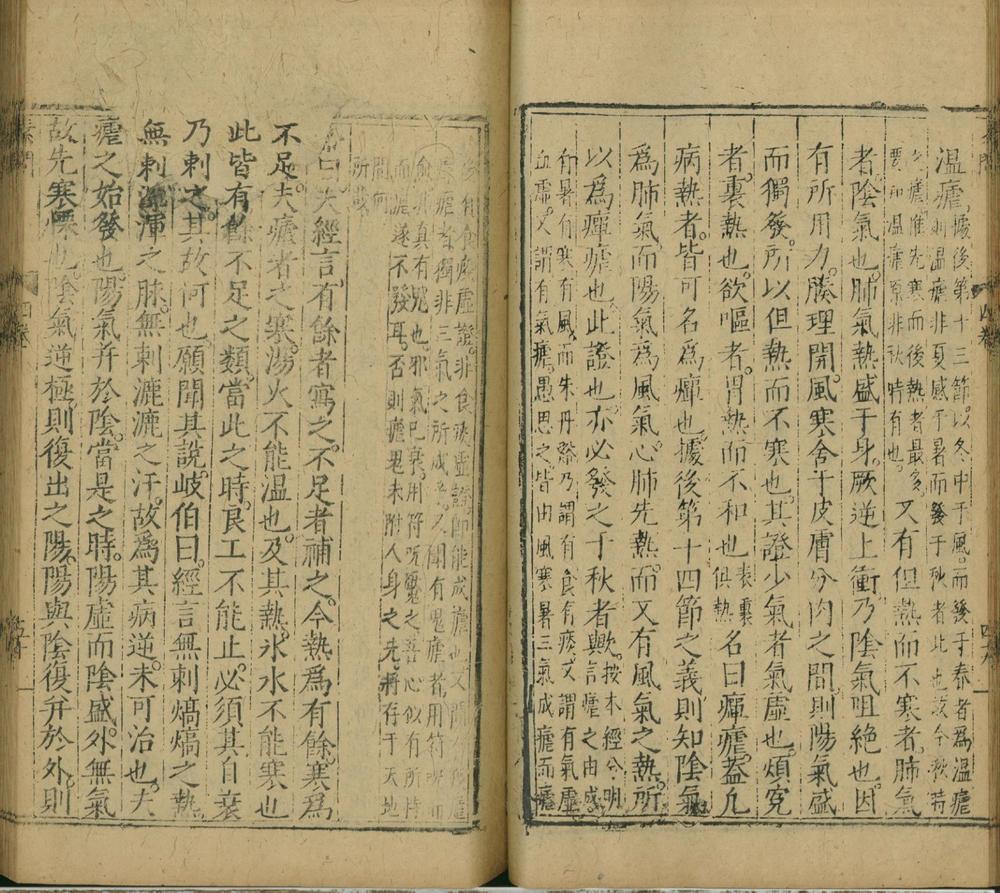 溫瘧據後第十三節以冬中于風而發于春者為溫瘧
則溫瘧非夏感于暑而發于秋者此也玆今秋時
之瘧惟先寒而後熱者最多
要知溫瘧原非秋時有也又有但熱而不寒者肺氣
者陰氣也肺氣熱盛于身厥逆上衝乃陰氣咀絕也因
有所用力腠理開風寒舍于皮膚分肉之間則陽氣盛
而獨發所以但熱而不寒也其證少氣者氣虛也煩寃
者裏熱也欲嘔者胃熱而不和也表裏俱熱名曰癉瘧蓋凡
病熱者皆可名為癉也據後第十四節之義則知陰氣
為肺氣而陽氣為風氣心肺先熱而又有風氣之熱所
以為癉瘧也此證也亦必發之于秋者歟按本經分明言瘧之由成
有暑有寒有風而朱丹溪乃謂有食有痰又謂有氣虛
血虛又謂有氣瘧愚思之皆由風寒暑三氣成瘧而瘧
食痰虛證非食痰虛證即能成瘧也又
瘧者獨非三氣之所成 又聞有鬼瘧者用符
食 真有鬼也邪氣已衰用符呪魘之吾心似有所恃
而瘧遂不發耳否則瘧鬼未附人身之先將存于天地
間何
所哉
曰夫經言有餘者寫之不足者補之今熱為有餘寒為
不足夫瘧者之寒湯火不能溫也及其熱氷水不能寒也
此皆有餘不足之類當此之時良工不能止必須其自衰
乃刺之其故何也願聞其說岐伯曰經言無刺熇熇之熱
無刺渾渾之脉無刺漉漉之汗故為其病逆未可治也夫
瘧之始發也陽氣并於陰當是之時陽虛而陰盛外無氣
故先寒慄也陰氣逆極則復出之陽陽與陰復并於外則